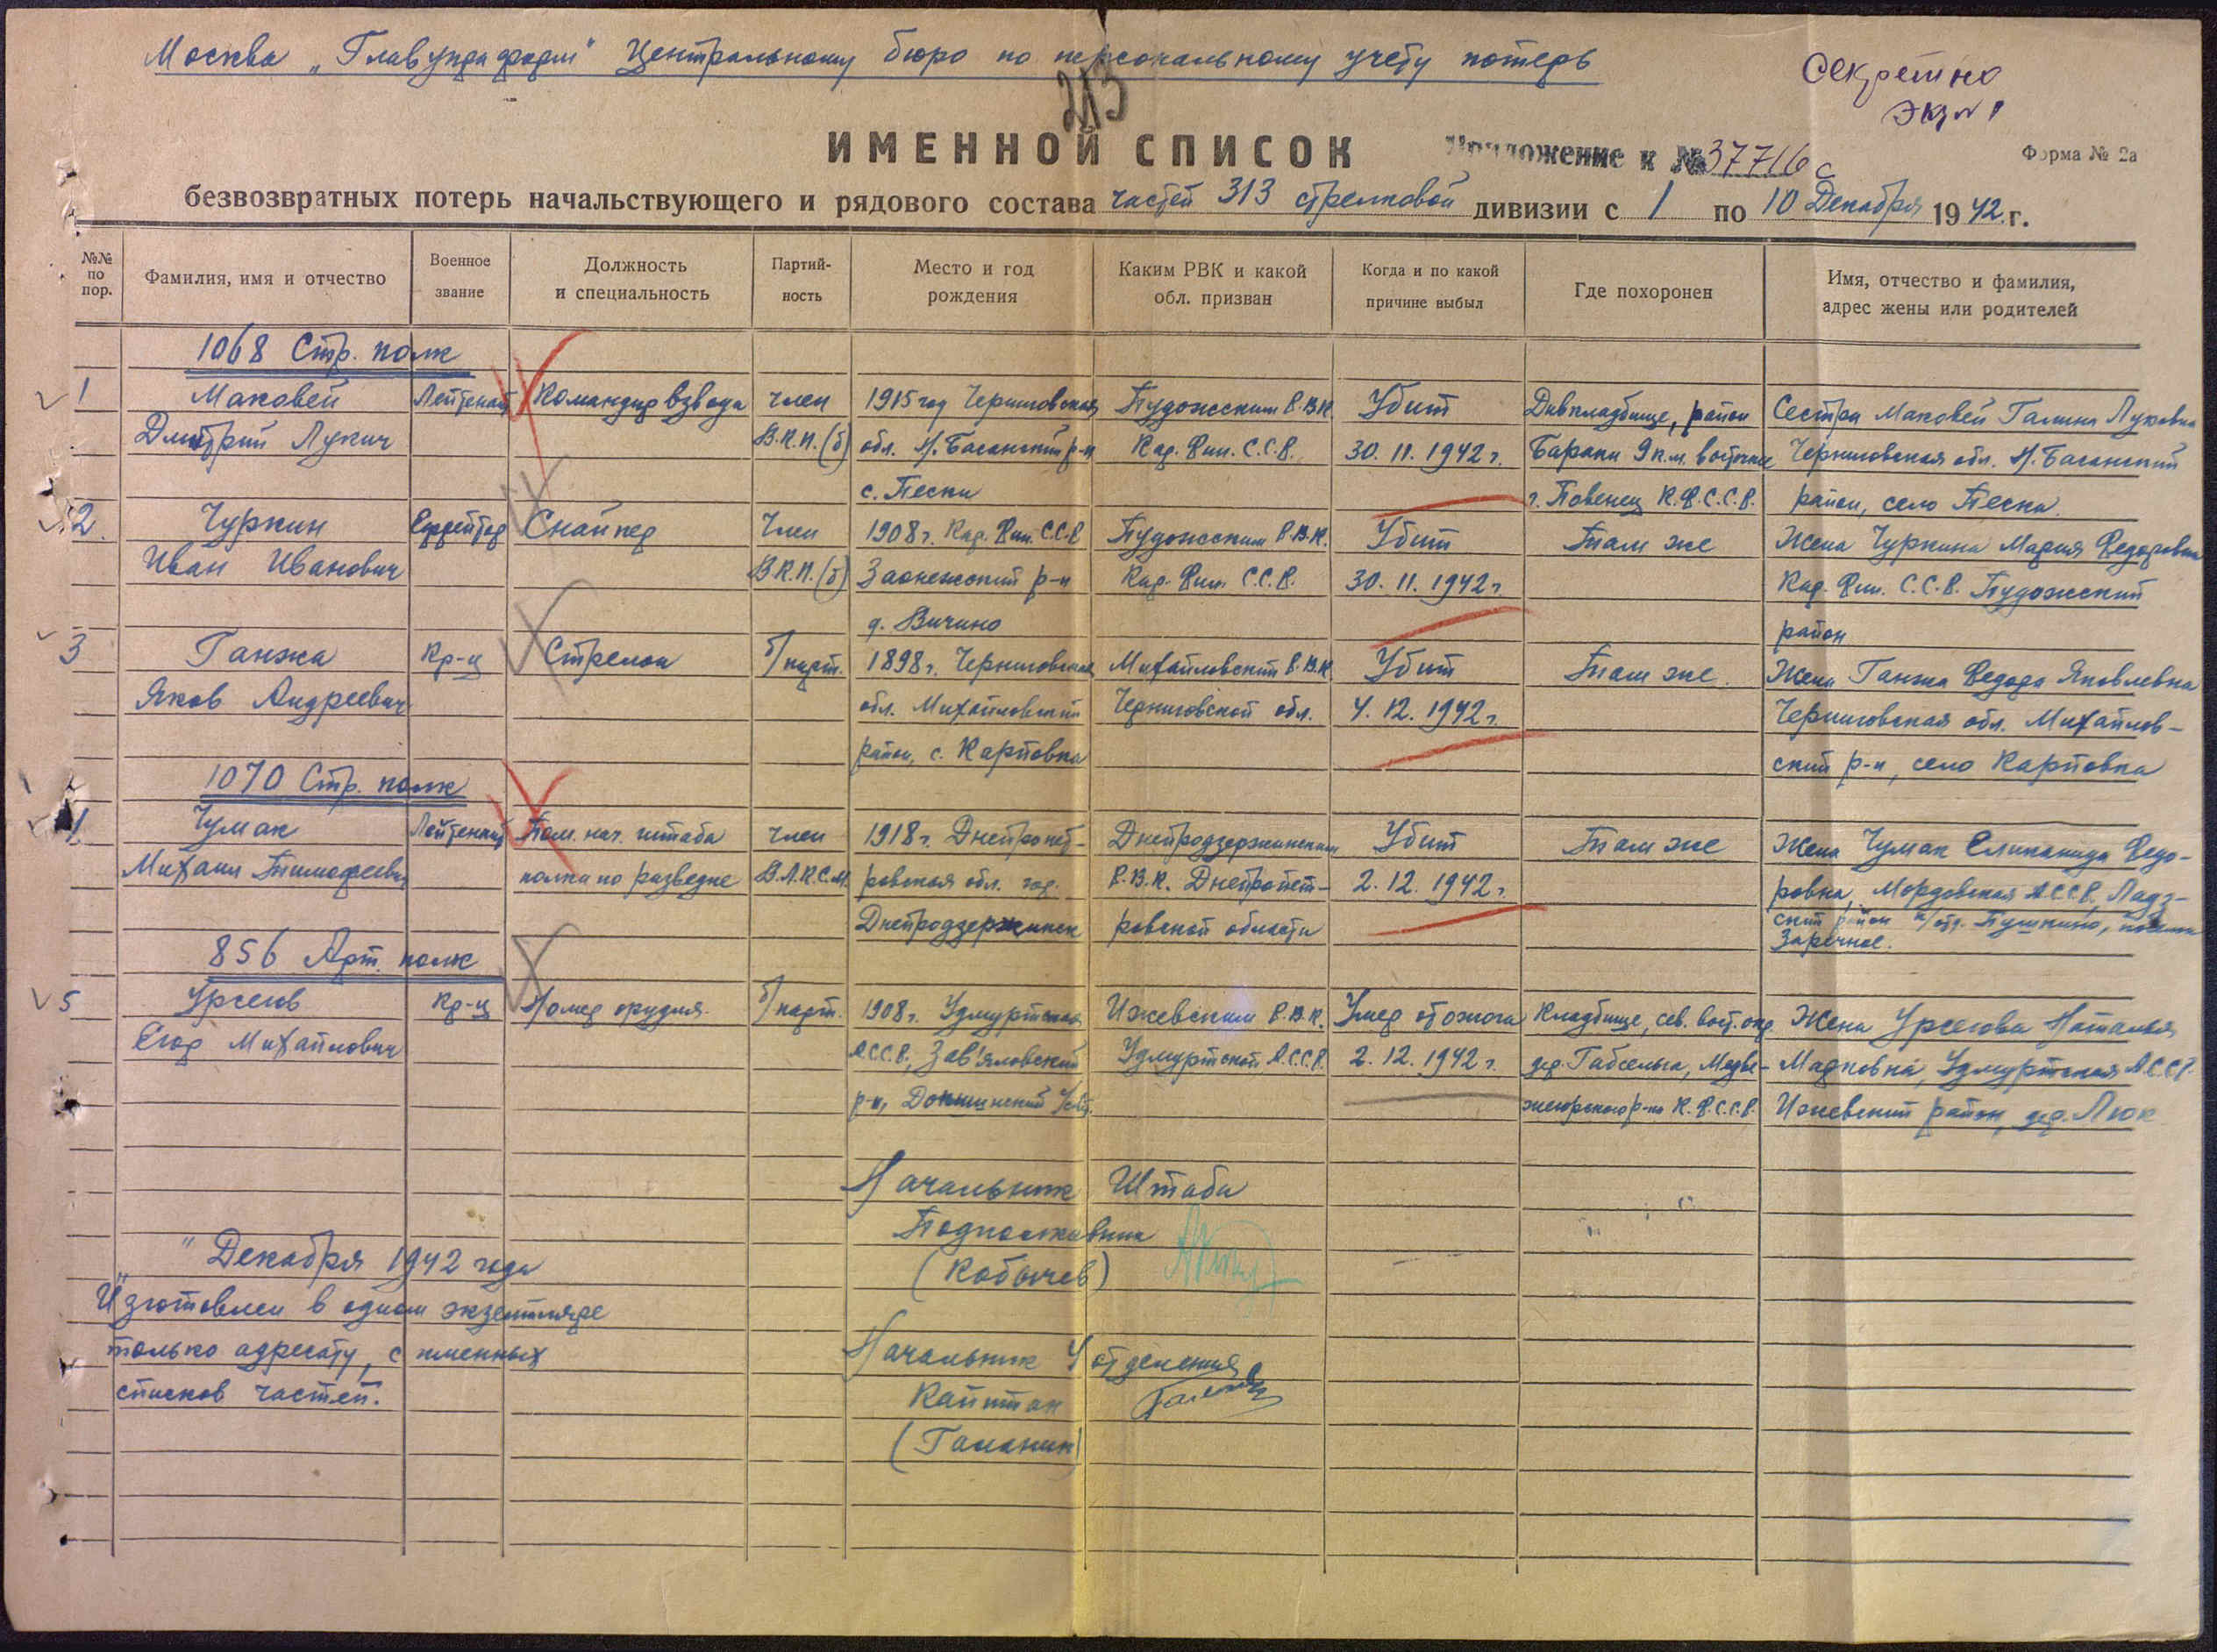 Москва „Главупраформ" Центральному бюро по персональному учету потерь
Секретно
экз № 1
213
ИМЕННОЙ СПИСОК
Приложение к № 37716с
Форма № 2а
безвозвратных потерь начальствующего и рядового состава частей 313 стрелковой дивизии с 1 по 10 Декабря 1942 г.
№№ по пор.
Фамилия, имя и отчество
Военное звание
Должность и специальность
Партий-ность
Место и год рождения
Каким РВК и какой обл. призван
Когда и по какой причине выбыл
Где похоронен
Имя, отчество и фамилия, адрес жены или родителей
1068 Стр. полк
1 Маковей Лейтенант Командир взвода член 1915 год Черниговская Пудожским Р.В.К. Убит Дивкладбище, район Сестра Маковей Галина Луковна
Дмитрий Лукич В.К.П.(б) обл. Н. Басанский р-н Кар. Фин. С.С.Р. 30.11.1942 г. Бараки 9 к.м. восточнее Черниговская обл. Н. Басанский
с. Пески г. Повенец К.Ф.С.С.Р. район, село Пески.
2. Чуркин Ефрейтор Снайпер Член 1908 г. Кар. Фин. С.С.Р. Пудожским Р.В.К. Убит Там же Жена Чуркина Мария Федоровна
Иван Иванович В.К.П.(б) Заонежский р-н Кар. Фин. С.С.Р. 30.11.1942 г. Кар. Фин. С.С.Р. Пудожский
д. Вичино район
3 Ганжа Кр-ц Стрелок б/парт. 1898 г. Черниговская Михайловский Р.В.К. Убит Там же. Жена Ганжа Федора Яковлевна
Яков Андреевич обл. Михайловский Черниговской обл. 4.12.1942 г. Черниговская обл. Михайлов-
район, с. Карповка ский р-н, село Карповка
1070 Стр. полк
Чумак Лейтенант Пом. нач. штаба член 1918 г. Днепропет- Днепродзержинским Убит Там же Жена Чумак Федо-
Михаил Тимофеевич полка по разведке В.Л.К.С.М. ровская обл. гор. Р.В.К. Днепропет- 2.12.1942 г. ровна, Мордовская АССР, Ладз-
Днепродзержинск ровской области ский район п/отд. Пушкино,
Заречное.
856 Арт. полк
5 Урсегов Кр-ц Номер орудия. б/парт. 1908 г. Удмуртская Ижевским Р.В.К. Умер от ожога Кладбище, сев. вост. окр. Жена Урсегова Наталья
Егор Михайлович АССР, Зав'яловский Удмуртской А.С.С.Р. 2.12.1942 г. дер. Габсельга, Медве- Марковна, Удмуртская А.С.С.Р.
р-н, жегорского р-на К.Ф.С.С.Р. Ижевский район, дер. Люк
Начальник Штаба
Подполковник
" Декабря 1942 года
(Кобычев)
Изготовлен в одном экземпляре
только адресату, с именных
Начальник 4 отделения
списков частей.
Капитан
(Галанин)